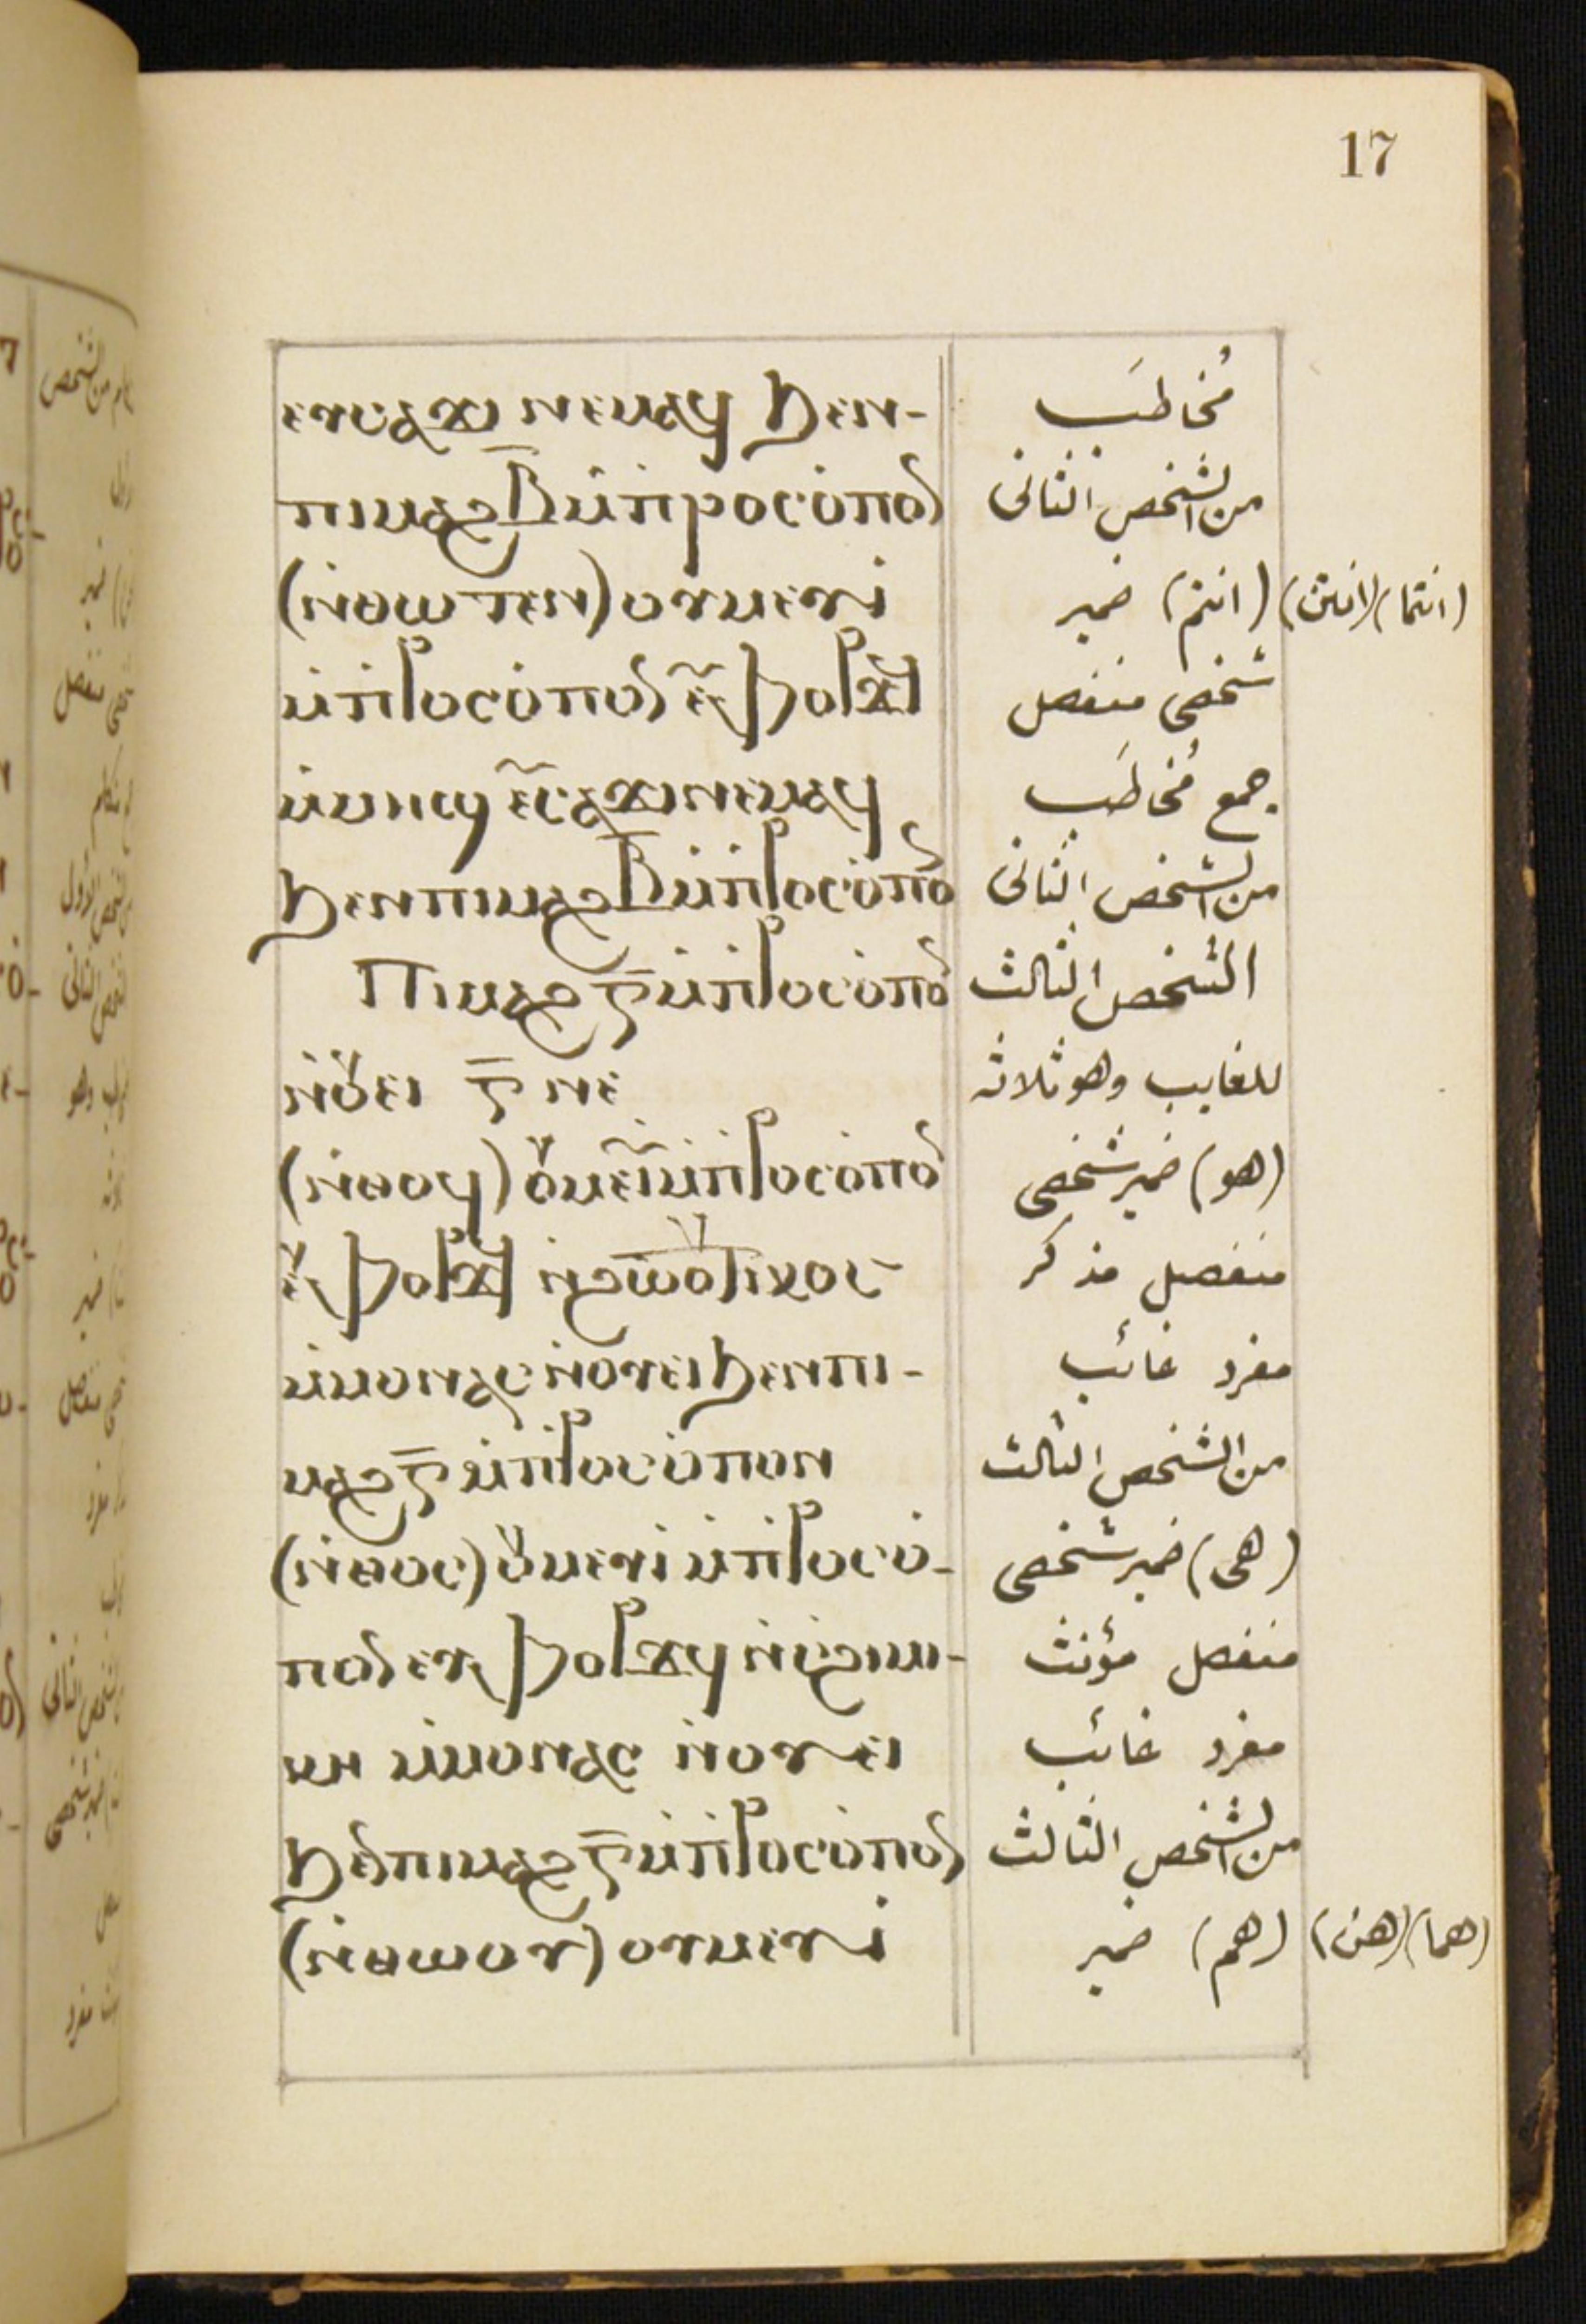 17
ⲉⲩⲥⲁϫⲓ ⲛⲉⲙⲁϥ ϧⲉⲛ- مُخاطَب
ⲡⲓⲙⲁϩⲃ̅ ⲙ̇ⲡ̇ⲣⲟⲥⲟ̇ⲡⲟⲛ من الشخص الثانى
(ⲛ̇ⲑⲱⲧⲉⲛ) ⲟⲩⲙⲉⲩⲓ̇ (انتم) ضمير (انتن) (انتما)
ⲙ̇ⲡ̇ⲣⲟⲥⲟ̇ⲡⲟⲛ ⲉⲩϥⲟⲣϫϥ شخصى منفصل
ⲙ̇ⲙⲏϣ ⲉⲩⲥⲁϫⲓ ⲛⲉⲙⲁϥ جمع مُخاطَب
ϧⲉⲛ ⲡⲓⲙⲁϩⲃ̅ ⲙ̇ⲡ̇ⲣⲟⲥⲟ̇ⲡⲟ من الشخص الثانى
Ⲡⲓⲙⲁϩ ⲅ̅ ⲙ̇ⲡ̇ⲣⲟⲥⲟ̇ⲡⲟ الشخص الثالث
ⲛ̇ⲟⲩⲉⲓ ⲅ̅ ⲛⲉ للغايب وهو ثلاثه
(ⲛ̇ⲑⲟϥ) ⲟⲩⲙⲉⲩⲓ ⲙ̇ⲡ̇ⲣⲟⲥⲟ̇ⲡⲟⲛ (هو) ضمير شخصى
ⲉⲩϥⲟⲣϫϥ ⲛ̇ϩⲱⲟⲩⲧ ⲓⲕⲟⲥ منفصل مذكر
ⲙ̇ⲙⲟⲛⲁⲥ ⲛ̇ⲟⲩⲉⲓ ϧⲉⲛ ⲡⲓ- مفرد غائب
ⲙⲁϩ ⲅ̅ ⲙ̇ⲡ̇ⲣⲟⲥⲟ̇ⲡⲟⲛ من الشخص الثالث
(ⲛ̇ⲑⲟⲥ) ⲟⲩⲙⲉⲩⲓ̇ ⲙ̇ⲡ̇ⲣⲟⲥⲟ̇- (هى) ضمير شخصى
ⲡⲟⲛ ⲉⲩϥⲟⲣϫϥ ⲛ̇ⲥ̇ϩⲓⲙⲓ- منفصل مؤنث
ⲕⲏ ⲙ̇ⲙⲟⲛⲁⲥ ⲛ̇ⲟⲩⲉⲓ مفرد غائب
ϧⲉⲛ ⲡⲓⲙⲁϩ ⲅ̅ ⲙ̇ⲡ̇ⲣⲟⲥⲟ̇ⲡⲟⲛ من الشخص الثالث
(ⲛ̇ⲑⲱⲟⲩ) ⲟⲩⲙⲉⲩⲓ̇ (هم) ضمير (هن) (هما)